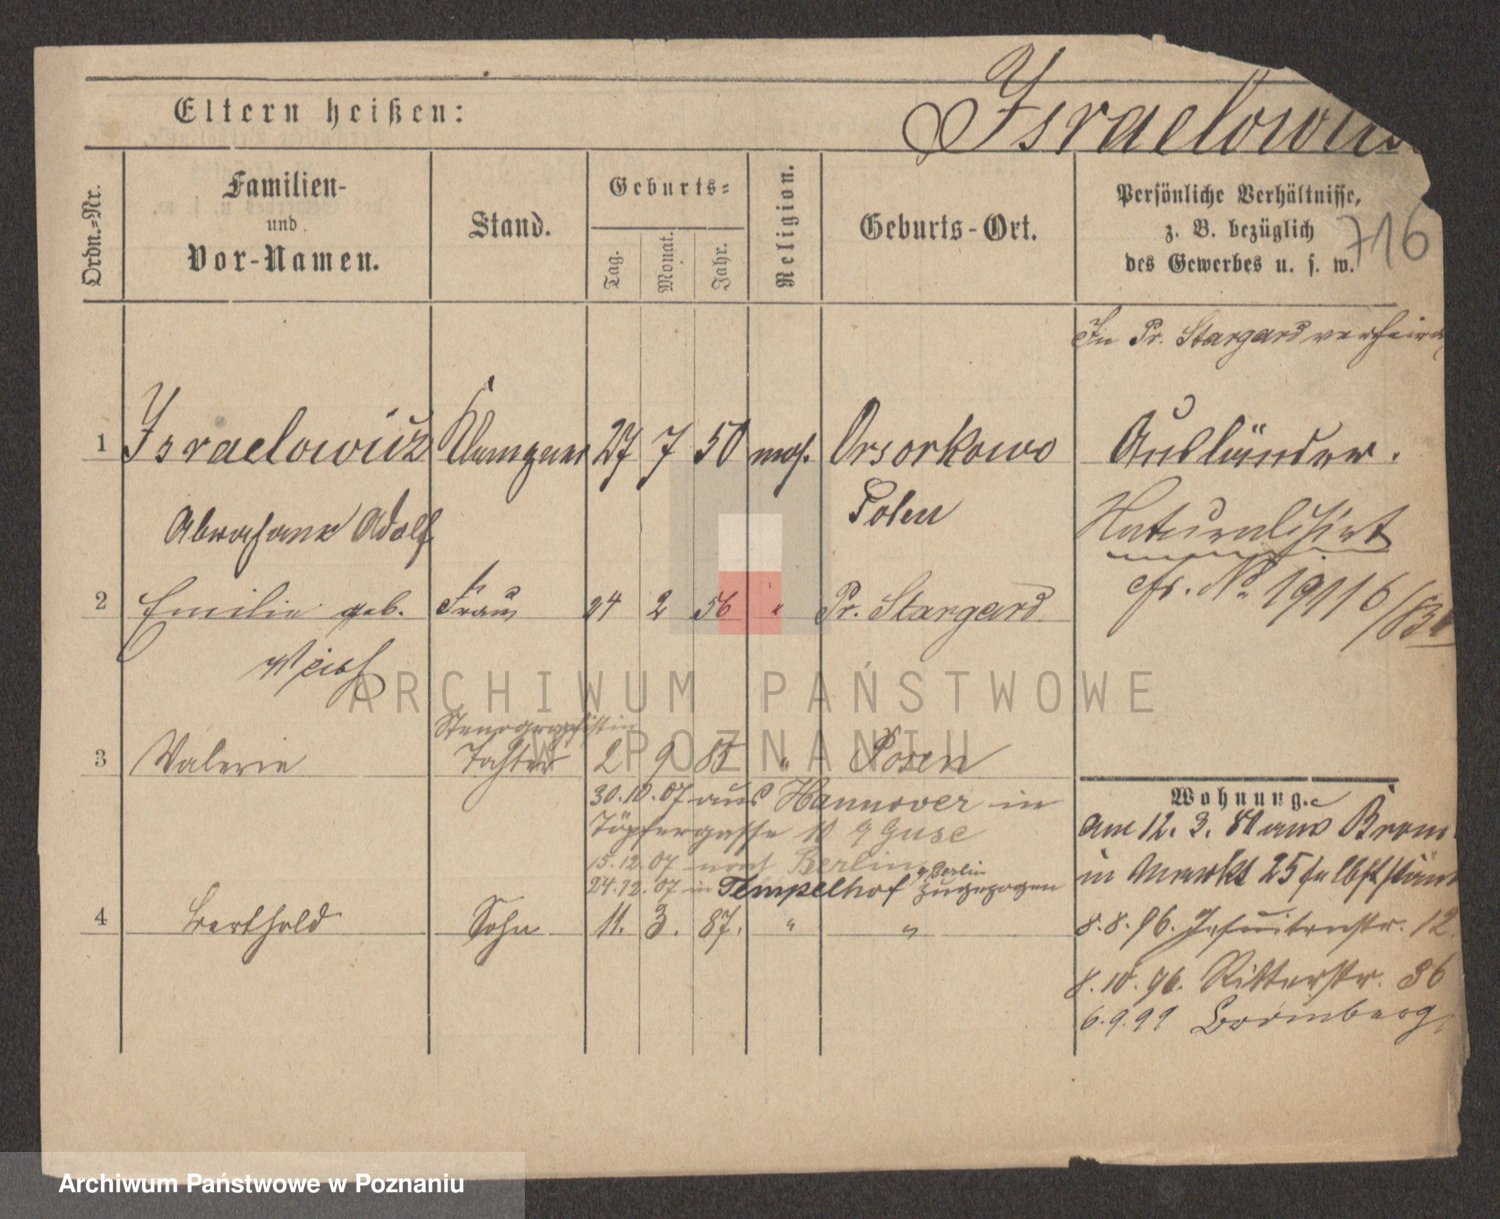 Eltern heißen:
Israelowicz
Ordn.=Nr.
Familien-
und
Vor-Namen.
Stand.
Geburts=
Tag.
Monat.
Jahr.
Religion.
Geburts-Ort.
Persönliche Verhältnisse,
z. B. bezüglich
des Gewerbes u. s. w.
716
In Pr. Stargard verheira
1 Israelowicz Klempner 27 7 50 mos. Orsorkowo Ausländer.
Abraham Adolf Polen
Naturalisirt
cfr. No 19116/83
2 Emilie geb. Frau 24 2 56 " Pr. Stargard
Stenographistin
3 Valerie Tochter 2 9 85 " Posen
30.10.07 aus Hannover in
Töpfergasse 10 Guse
15.12.07 nach Berlin
24.12.07 in Tempelhof b/Berlin zugezogen
4 Berthold Sohn 11. 3. 87. " "
Wohnung.
am 12. 3. 80 aus Brom
in Markt 25 selbstständ
8.8.96. Jesuitenstr. 12
8.10.96. Ritterstr. 36
6.9.99 Bromberg.
ARCHIWUM PAŃSTWOWE
W POZNANIU
Archiwum Państwowe w Poznaniu